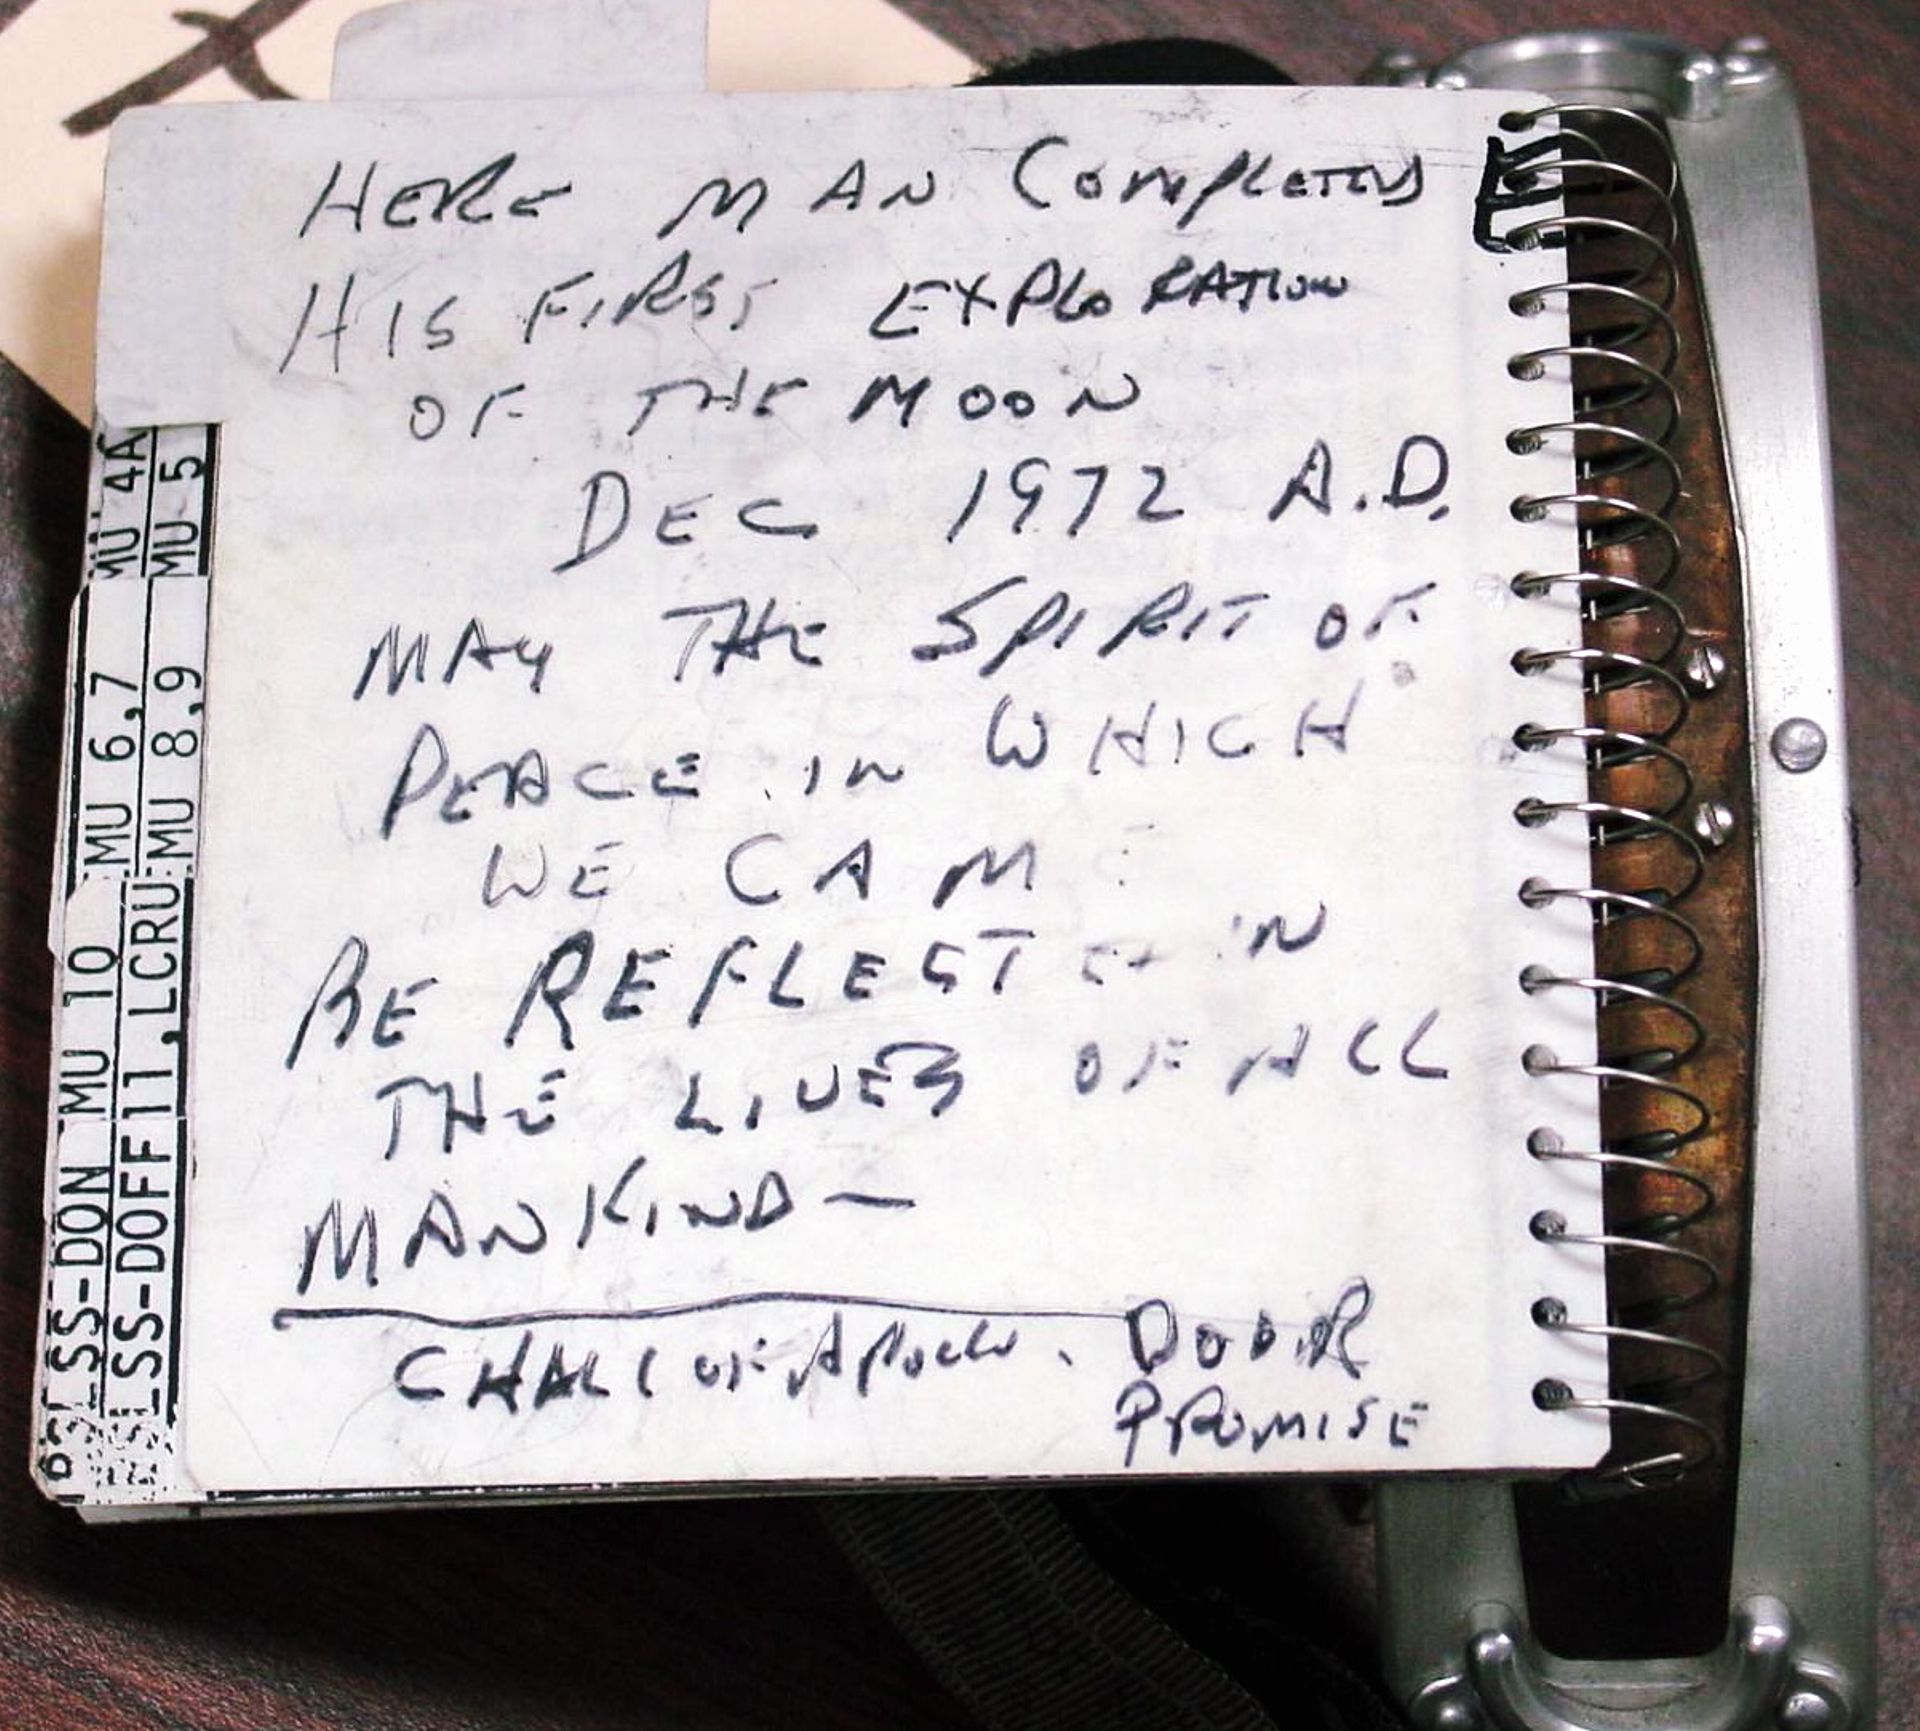 HERE MAN COMPLETED
HIS FIRST EXPLORATION
OF THE MOON
DEC 1972 A.D.
MAY THE SPIRIT OF
PEACE IN WHICH
WE CAME
BE REFLECTED IN
THE LIVES OF ALL
MANKIND —
CHALL OF APOLLO. DOOR
PROMISE
MU 4A
MU 5
MU 6,7
MU 8,9
LSS-DON MU 10
LSS-DOFF 11, LCRU